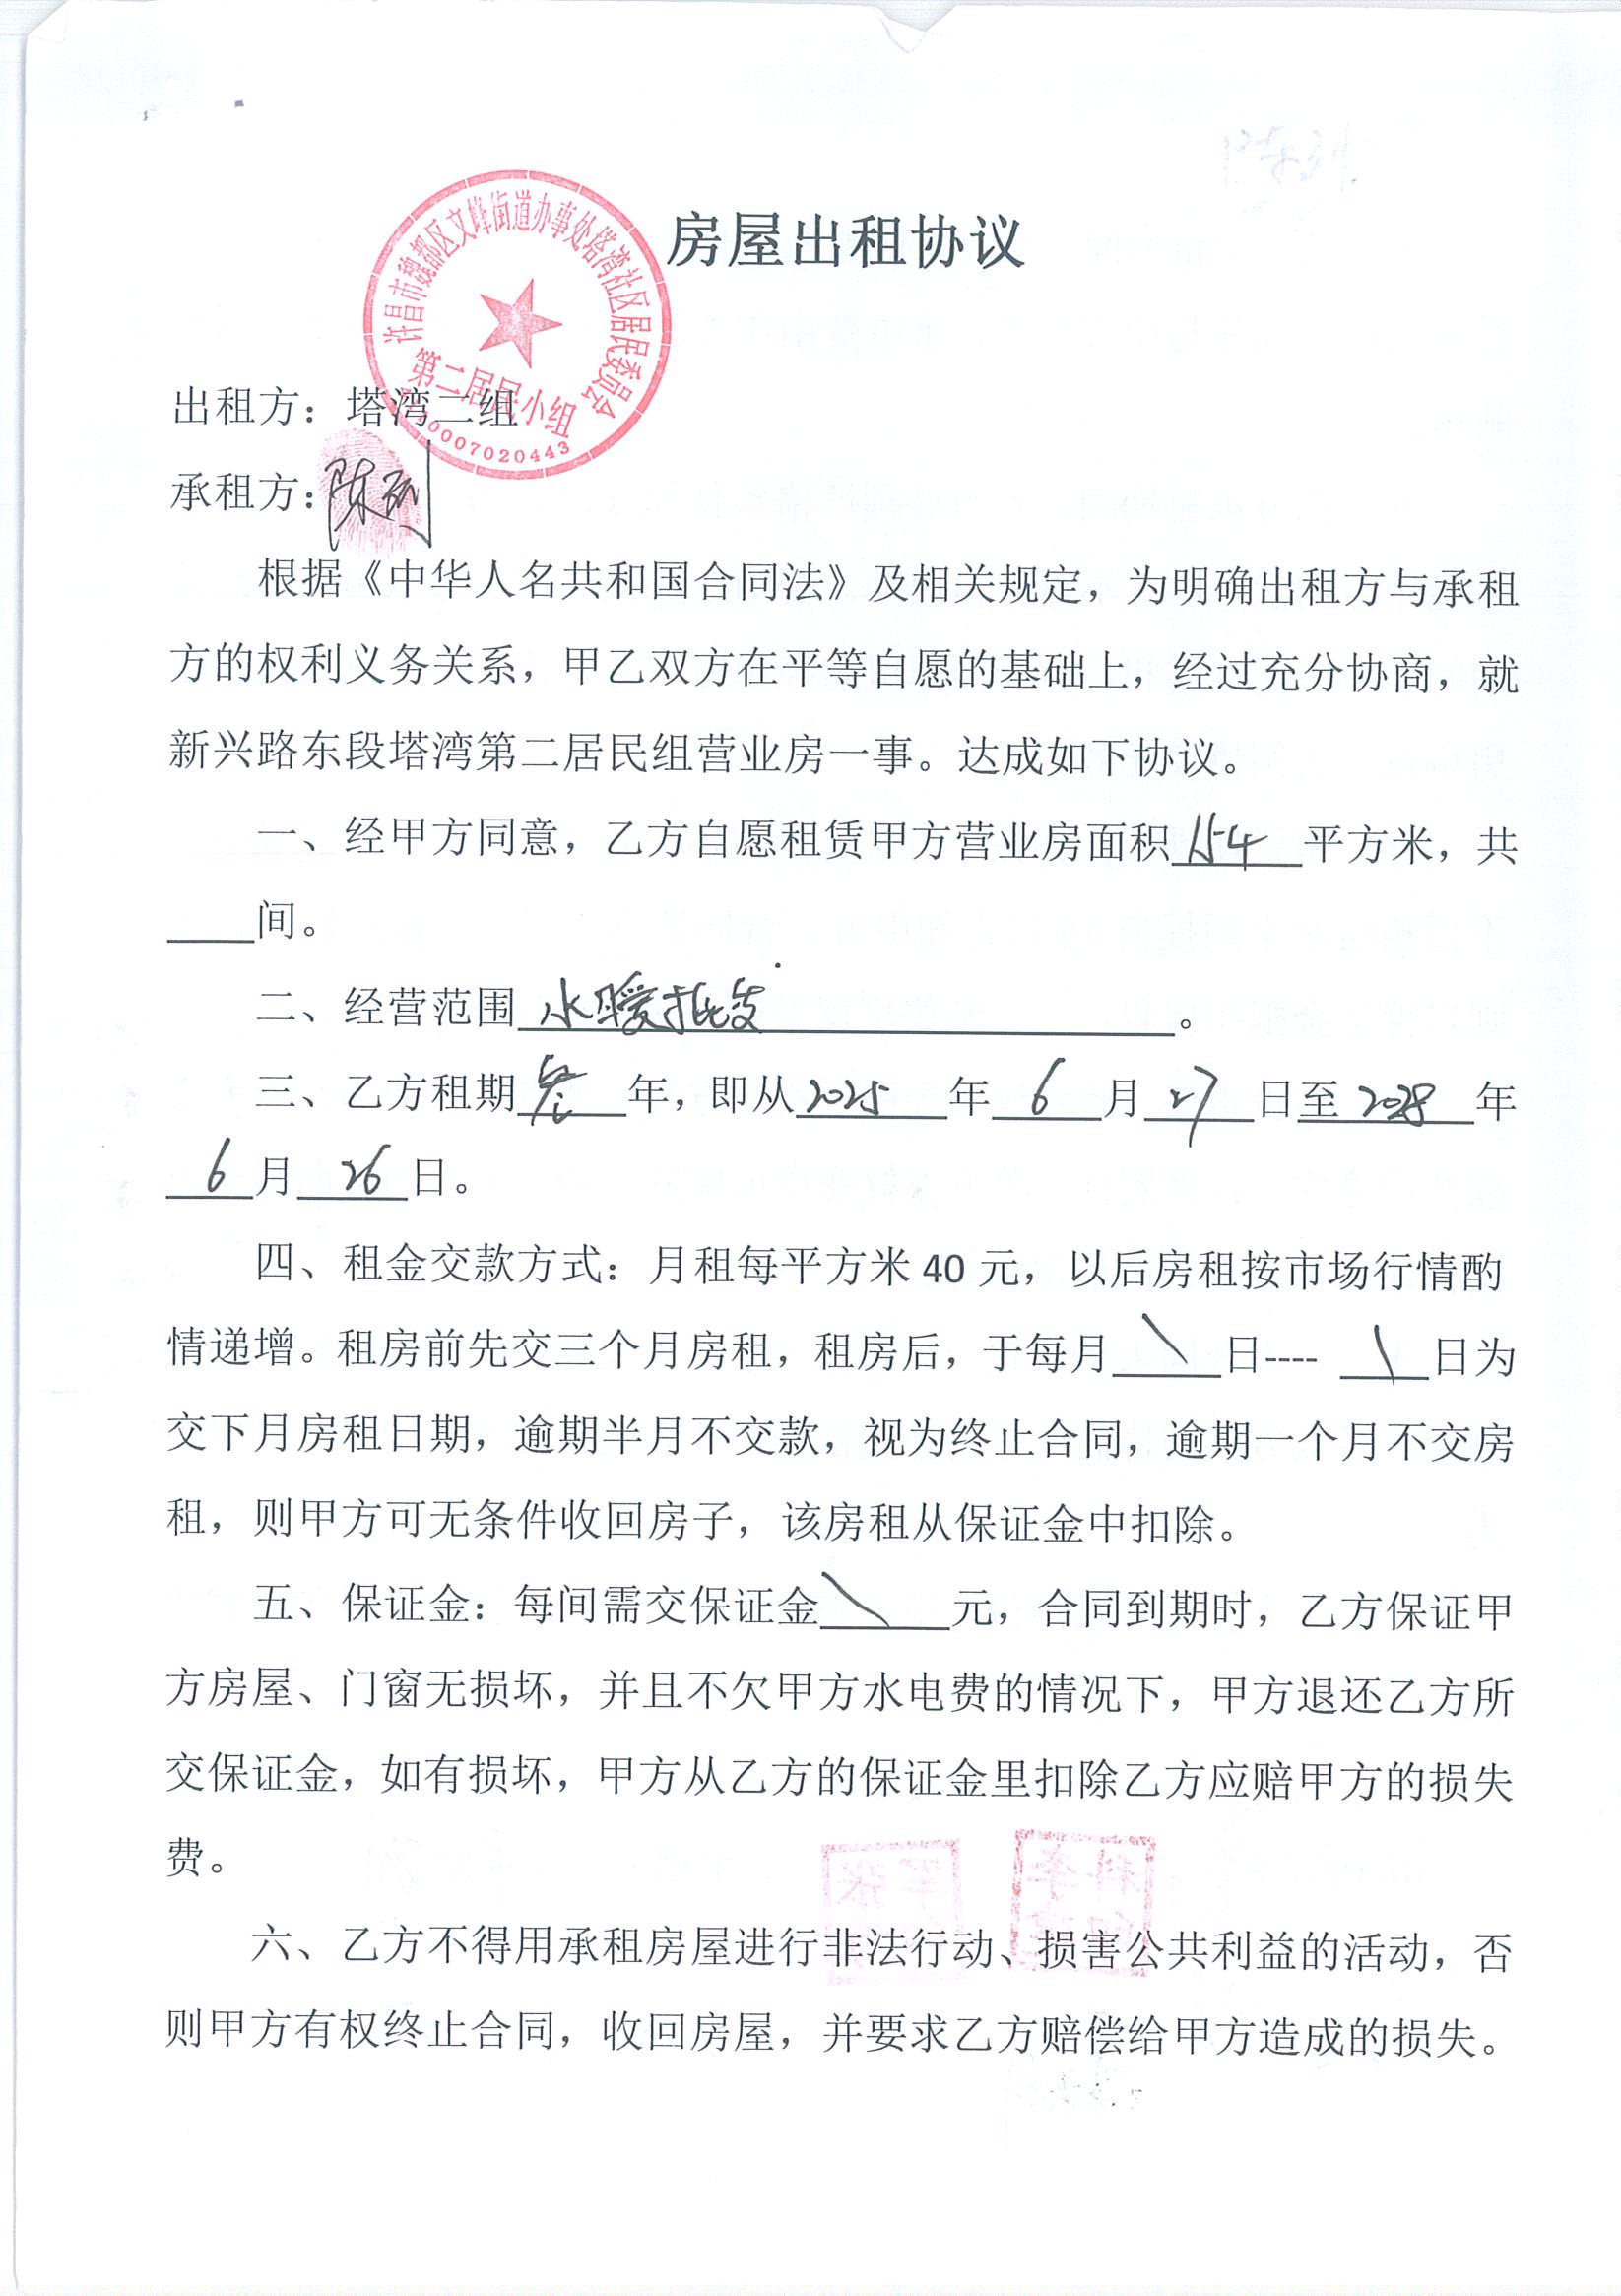 房屋出租协议
许昌市魏都区文峰街道办事处塔湾社区居民委员会
第二居民小组
0007020443
出租方：塔湾二组
承租方：陈列
根据《中华人名共和国合同法》及相关规定，为明确出租方与承租
方的权利义务关系，甲乙双方在平等自愿的基础上，经过充分协商，就
新兴路东段塔湾第二居民组营业房一事。达成如下协议。
一、经甲方同意，乙方自愿租赁甲方营业房面积154平方米，共
____间。
二、经营范围水暖批发。
三、乙方租期叁年，即从2025年6月27日至2028年
6月26日。
四、租金交款方式：月租每平方米40元，以后房租按市场行情酌
情递增。租房前先交三个月房租，租房后，于每月\日----\日为
交下月房租日期，逾期半月不交款，视为终止合同，逾期一个月不交房
租，则甲方可无条件收回房子，该房租从保证金中扣除。
五、保证金：每间需交保证金\元，合同到期时，乙方保证甲
方房屋、门窗无损坏，并且不欠甲方水电费的情况下，甲方退还乙方所
交保证金，如有损坏，甲方从乙方的保证金里扣除乙方应赔甲方的损失
费。
六、乙方不得用承租房屋进行非法行动、损害公共利益的活动，否
则甲方有权终止合同，收回房屋，并要求乙方赔偿给甲方造成的损失。